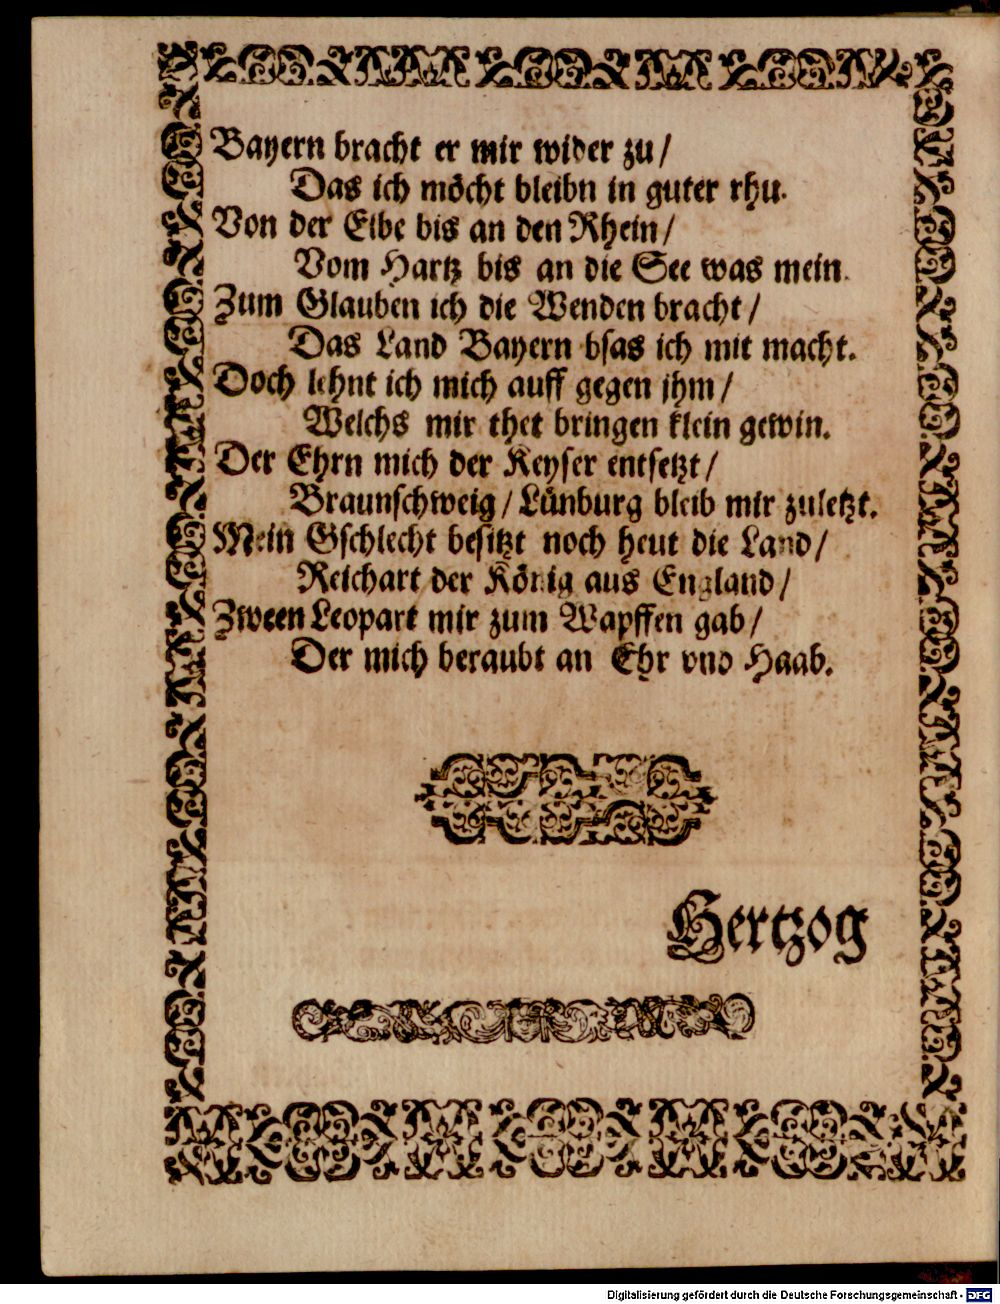 Bayern bracht er mir wider zu/
Das ich möcht bleibn in guter rhu.
Von der Elbe bis an den Rhein/
Vom Hartz bis an die See was mein.
Zum Glauben ich die Wenden bracht/
Das Land Bayern bsas ich mit macht.
Doch lehnt ich mich auff gegen jhm/
Welchs mir thet bringen klein gewin.
Der Ehrn mich der Keyser entsetzt/
Braunschweig/ Lünburg bleib mir zuletzt.
Mein Gschlecht besitzt noch heut die Land/
Reichart der König aus England/
Zween Leopart mir zum Wapffen gab/
Der mich beraubt an Ehr vnd Haab.
Hertzog
Digitalisierung gefördert durch die Deutsche Forschungsgemeinschaft - DFG